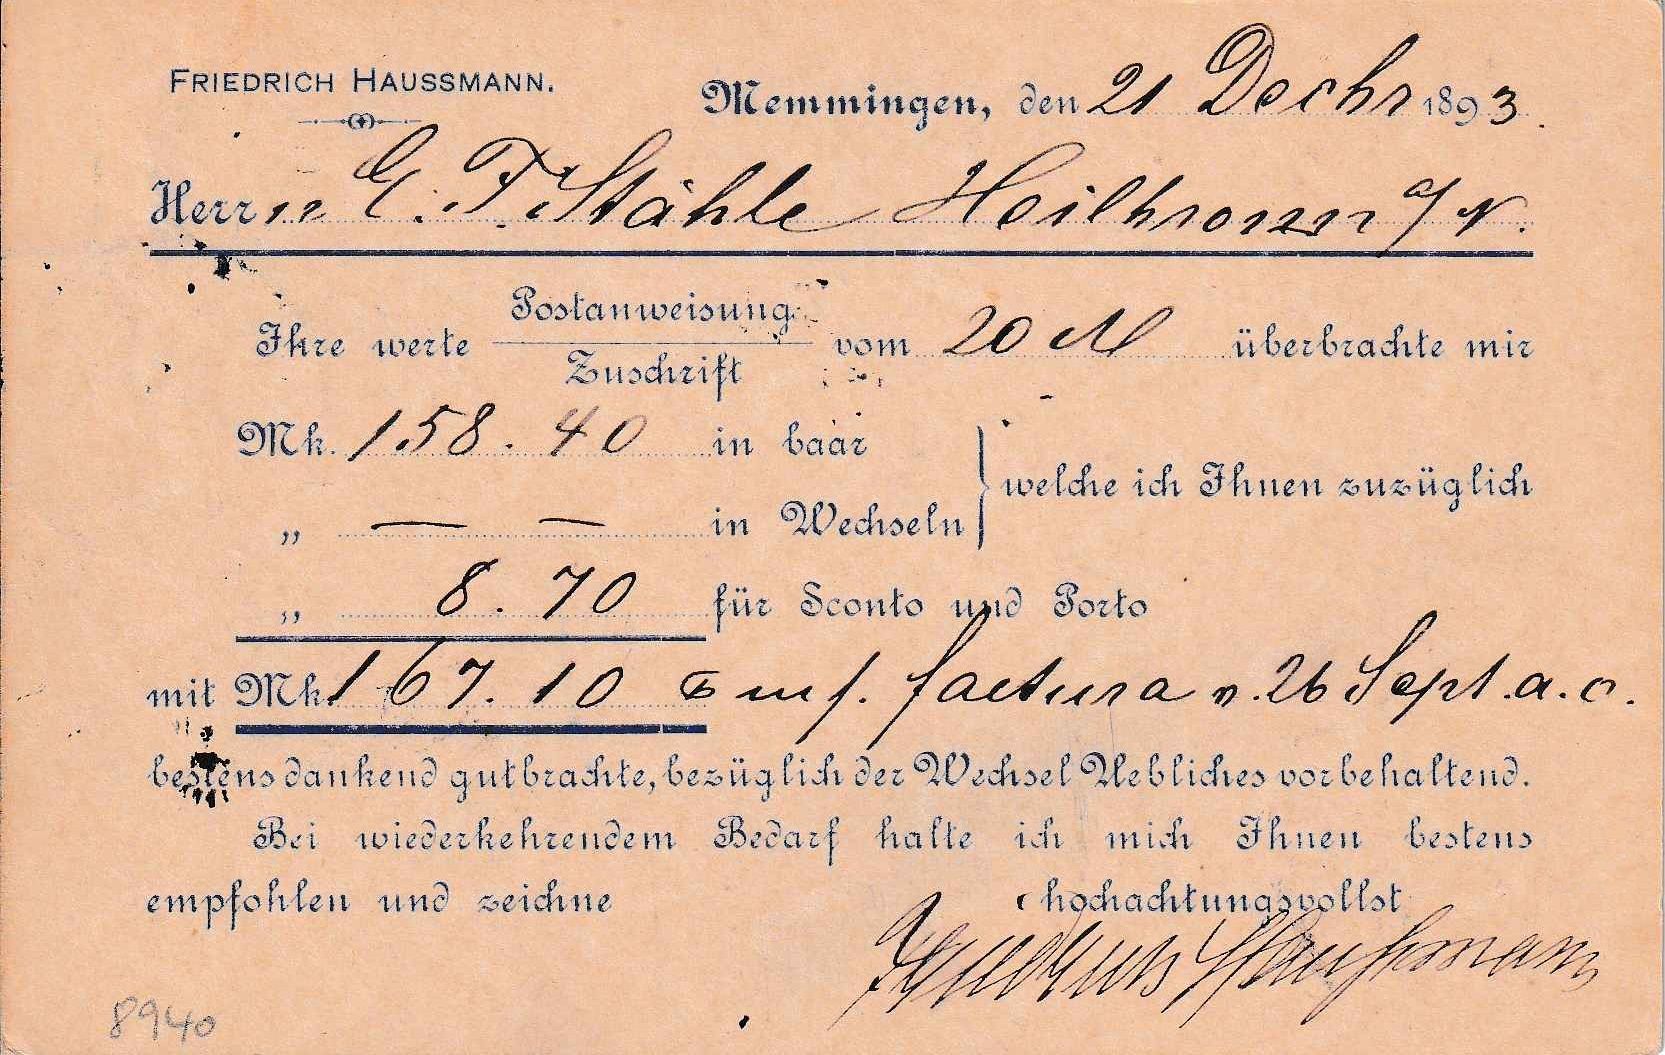 FRIEDRICH HAUSSMANN.
Memmingen, den 21 Dechr 1893.
Herrn E. F. Stähle Heilbronn a/N.
Ihre werte Postanweisung vom 20 überbrachte mir
Zuschrift
Mk. 158.40 in baar
" — — in Wechseln } welche ich Ihnen zuzüglich
" 8.70 für Sconto und Porto
mit Mk 167.10 m/. factura v. 26 Sept. a. c.
bestens dankend gutbrachte, bezüglich der Wechsel Uebliches vorbehaltend.
Bei wiederkehrendem Bedarf halte ich mich Ihnen bestens
empfohlen und zeichne hochachtungsvollst
Friedrich Haussmann
8940